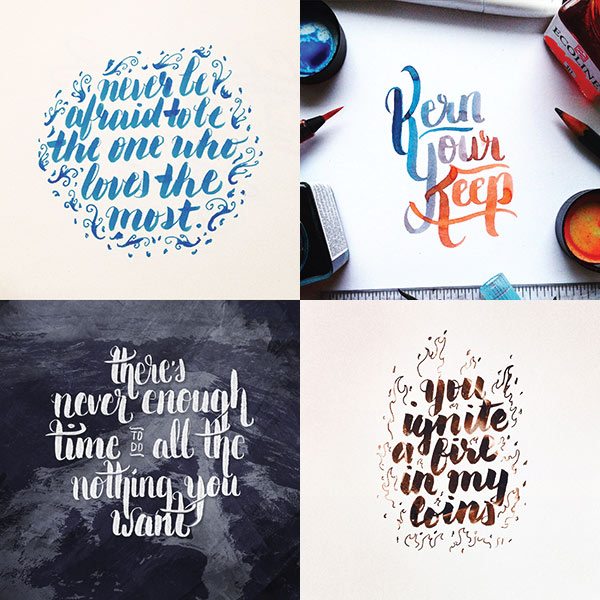 never be
afraid to be
the one who
loves the
most.
Kern
Your
Keep
ECOLINE
there's
never enough
time TO DO all the
nothing you
want
you
ignite
a fire
in my
loins